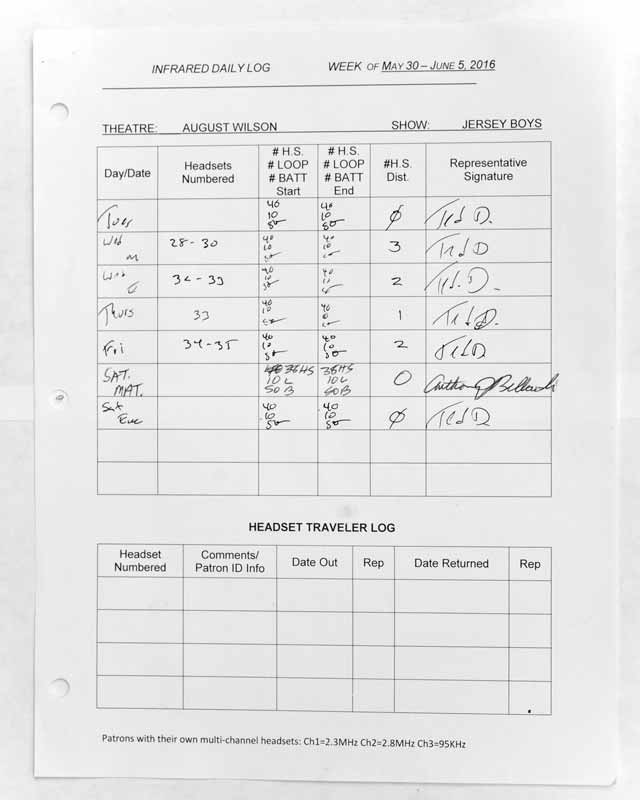 INFRARED DAILY LOG WEEK OF MAY 30 – JUNE 5, 2016
THEATRE: AUGUST WILSON SHOW: JERSEY BOYS
Day/Date Headsets Numbered # H.S. # LOOP # BATT Start # H.S. # LOOP # BATT End #H.S. Dist. Representative Signature
Tues 40 10 50 40 10 50 Ø Ted D.
Wed M 28-30 40 10 50 40 10 50 3 Ted D
Wed E 32-33 40 10 50 40 10 50 2 Ted. D.
Thurs 33 40 10 50 40 10 50 1 Ted D.
Fri 34-35 40 10 50 40 10 50 2 Ted D
SAT. MAT. 36HS 10L 50B 36HS 10L 50B 0 Anthony
Sat Eve 40 10 50 40 10 50 Ø Ted D
HEADSET TRAVELER LOG
Headset Numbered Comments/ Patron ID Info Date Out Rep Date Returned Rep
Patrons with their own multi-channel headsets: Ch1=2.3MHz Ch2=2.8MHz Ch3=95KHz